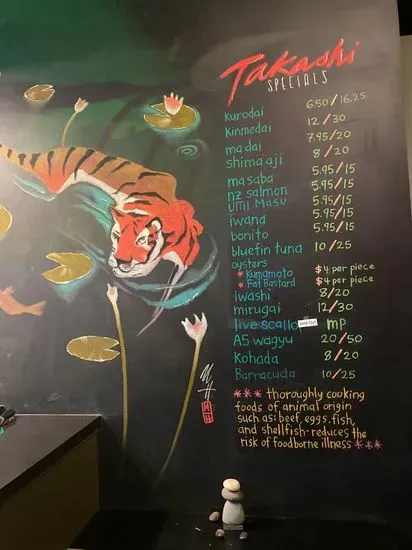 Takashi
SPECIALS
kurodai 6.50/16.25
kinmedai 12/30
madai 7.95/20
shima aji 8/20
masaba 5.95/15
nz salmon 5.95/15
umi masu 5.95/15
iwana 5.95/15
bonito 5.95/15
bluefin tuna 10/25
oysters
* Kumamoto $4 per piece
* Fat Bastard $4 per piece
iwashi 8/20
mirugai 12/30
live scallo Sold Out MP
A5 wagyu 20/50
Kohada 8/20
Barracuda 10/25
*** thoroughly cooking
foods of animal origin
such as: beef, eggs, fish,
and shellfish-reduces the
risk of foodborne illness ***